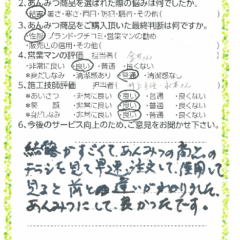 2.あんみつ商品を選ばれた際の悩みは何でしたか。
結露・暑さ・寒さ・防音・防犯・その他(
3.あんみつ商品をご購入頂いた最終判断は何ですか。
性能・ブランド・クチコミ・営業マンの勧め
販売店の信用・その他(
4.営業マンの評価 担当者(
*非常に良い・良い・普通・良くない
*身だしなみ 清潔感あり・普通・清潔感なし
5.施工技師評価 担当者(
*あいさつ・非常に良い・良い・普通・良くない
*笑顔・非常に良い・良い・普通・良くない
*身だしなみ・非常に良い・良い・普通・良くない
6.今後のサービス向上のため、ご意見をお聞かせ下さい。
結露がひどくて、あんみつの商品の
チラシを見て、早速、注文して、使用して
見ると、前とは違いがわかりました。
あんみつにして、良かったです。